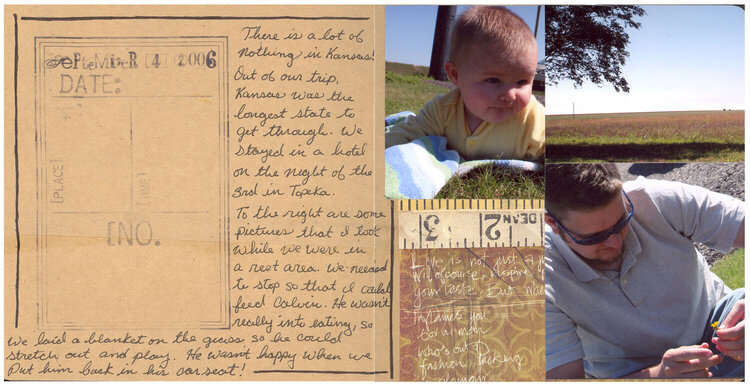 SEPTEMBER 4 2006
DATE:
[PLACE]
[TIME]
[NO.
There is a lot of
nothing in Kansas!
Out of our trip,
Kansas was the
longest state to
get through. We
stayed in a hotel
on the night of the
3rd in Topeka.
To the right are some
pictures that I took
while we were in
a rest area. We needed
to stop so that I could
feed Calvin. He wasn't
really into eating, so
we laid a blanket on the grass so he could
stretch out and play. He wasn't happy when we
put him back in his car seat!
3 2 DEAN
Love is not just a
will of course, inspire
your taste. But when
you
who's out of
fashion,